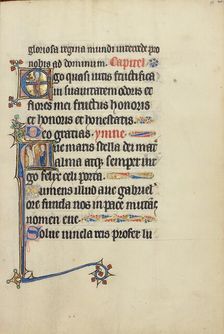 gloriosa regina mundi intercede pro
nobis ad dominum. Capitel'
Ego quasi vitis fructificaui
in suauitatem odoris et
flores mei fructus honoris
et honoris et honestatis.
Deo gratias. ymne
Aue maris stella dei mater
alma atq semper uirgo
felix celi porta.
Sumens illud aue gabrielis
ore funda nos in pace mutans
nomen eue.
Solue vincla reis profer lu